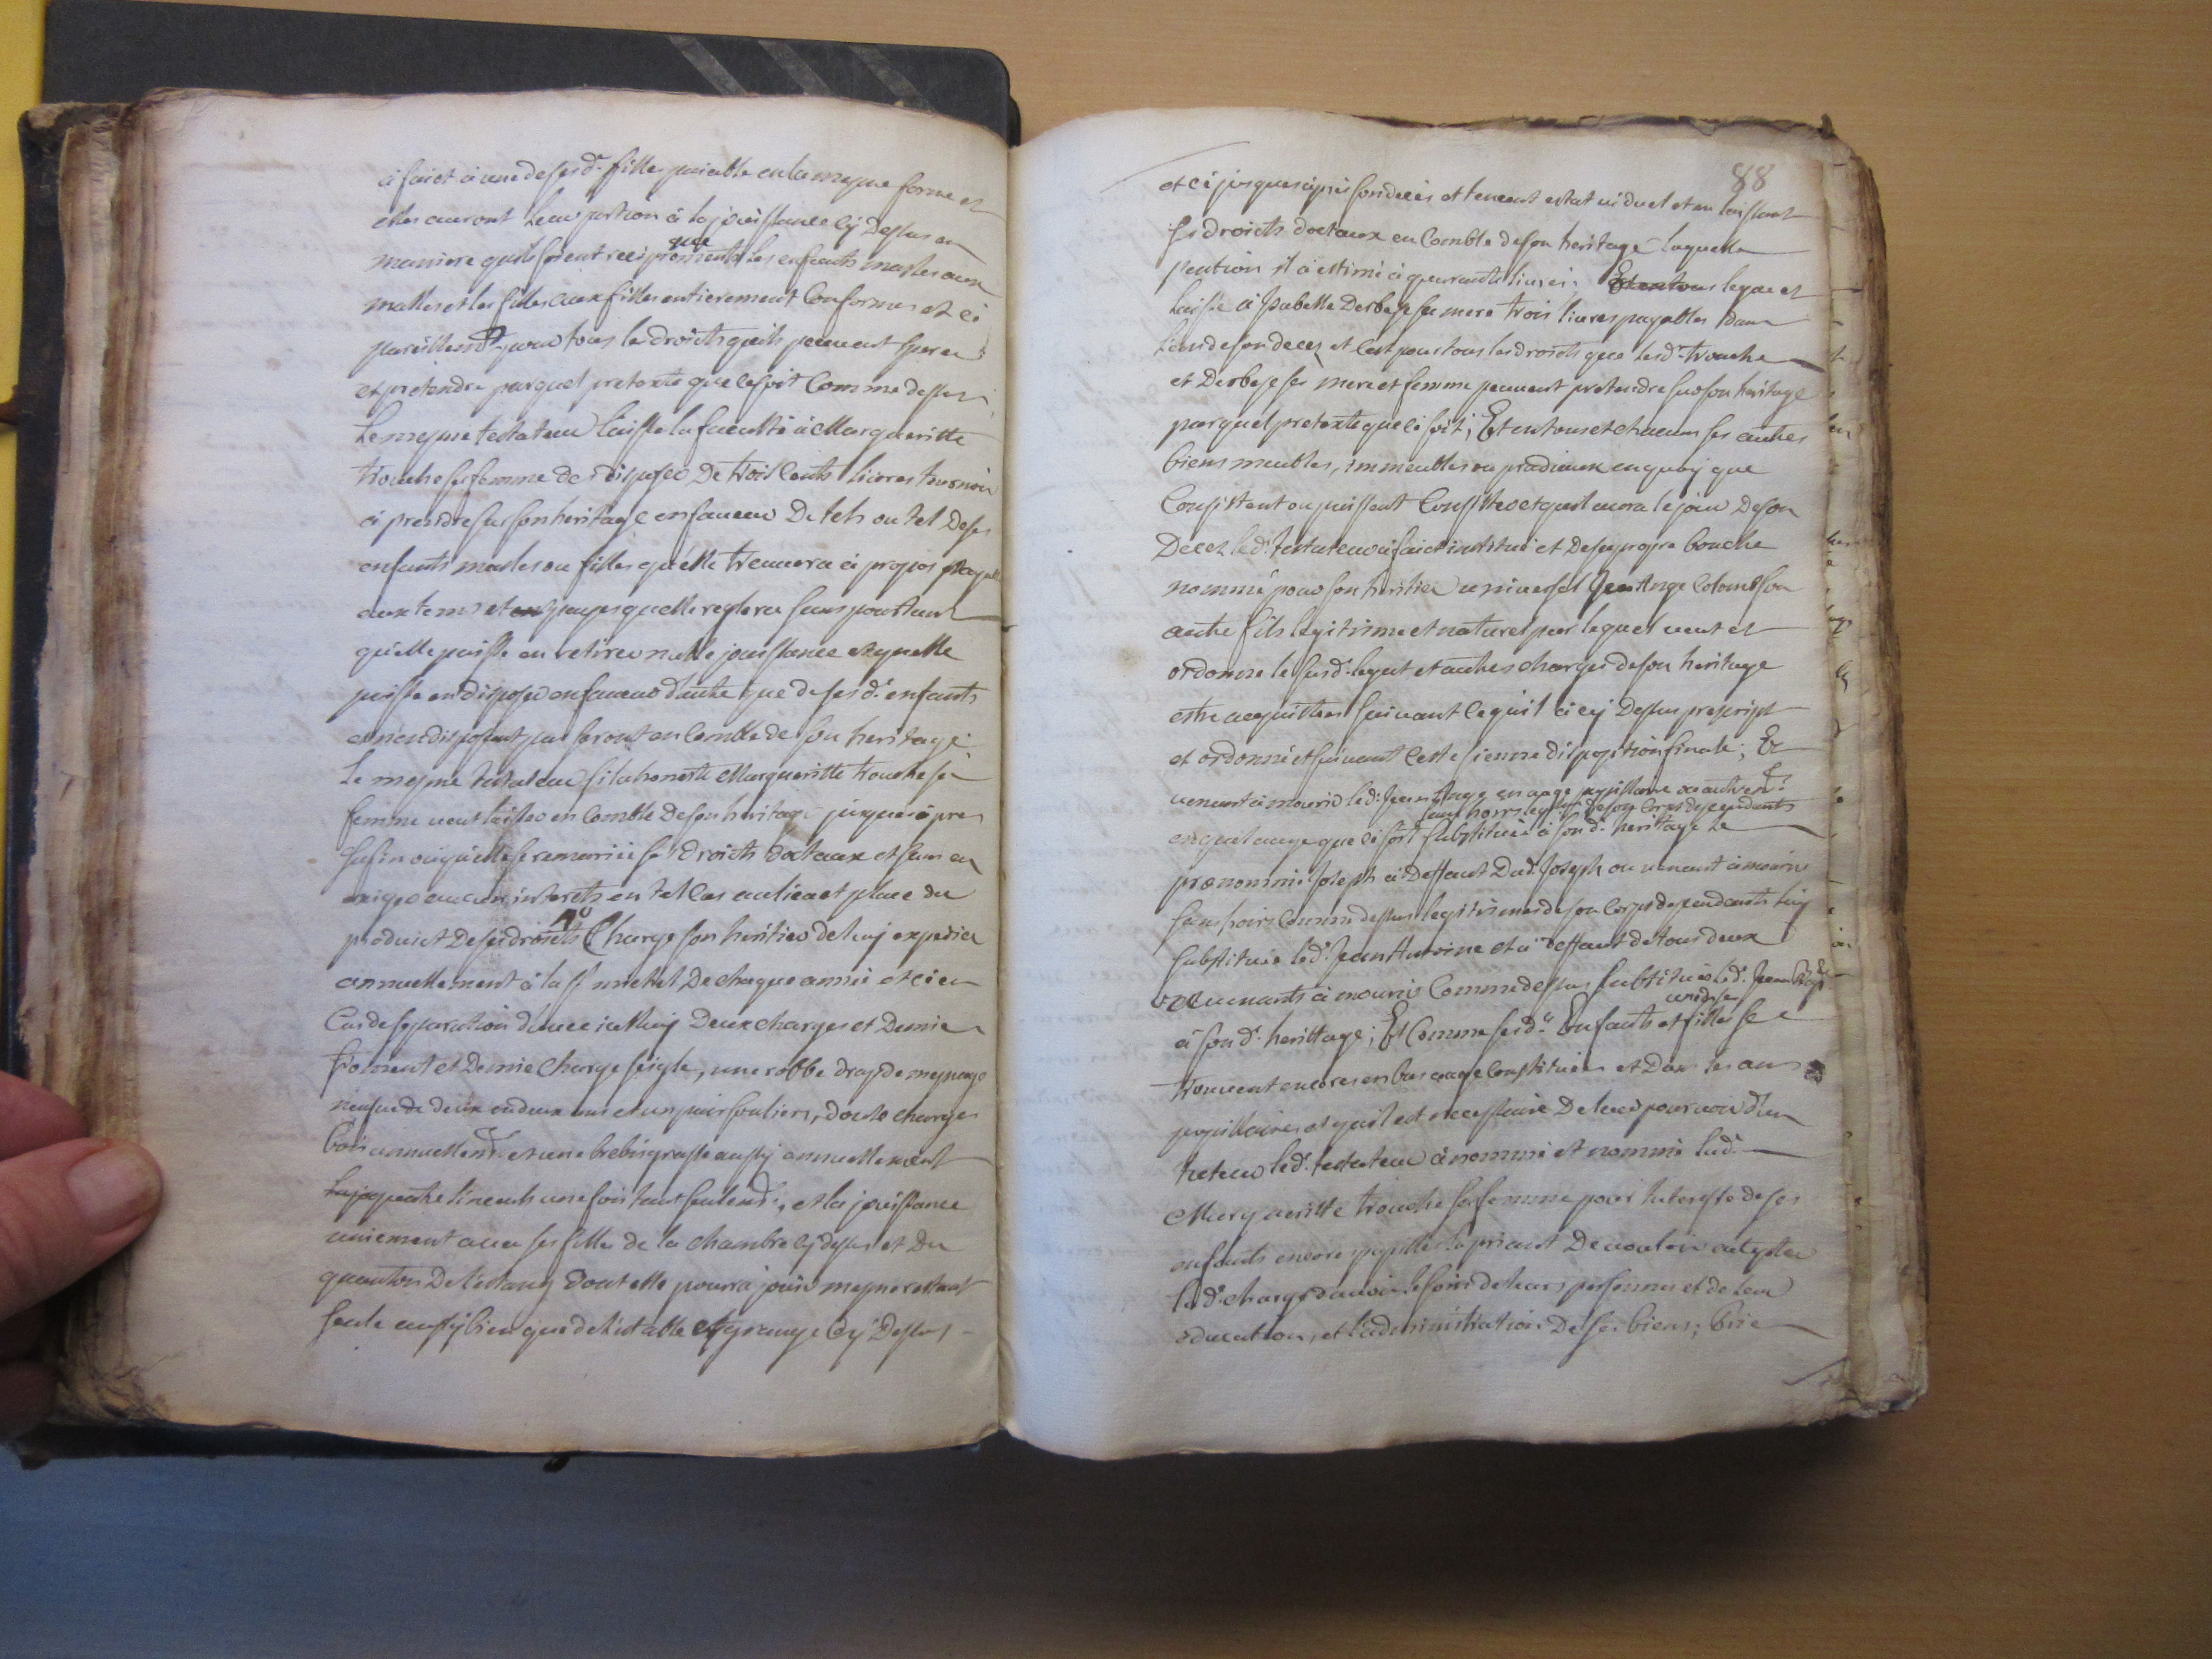 a faict a une de sesd. filles paiable en la mesme forme et
elles auront leur portion a la jouissance cy dessus en
maniere quils soient reciproquement les enfants masles aux
masles et les filles aux filles entierement conformes et ce
pareillemt. pour tous le droicts quils peuvent esperer
et pretendre par quel pretexte que ce soit comme dessus;
Le mesme testateur laisse la faculté à Margueritte
trouche sa femme de disposer de trois cents livres tournois
à prendre sur son heritage en faveur de tels ou tel de ses
enfants masles ou filles quelle treuvera à propos payable
aux tems et payes quelle reglera sans pourtant
quelle puisse en retirer nulle jouissance et quelle
puisse en disposer en faveur dautre que de sesd. enfants
et nen disposant pas seront en comble de son heritage;
Le mesme testateur si lad honeste Margueritte trouche sa
femme veut laisser en comble de son heritage jusques àpres
sa fin ou quelle se remarie ses droicts doctaux et sans en
exiger aucun interets en tel cas au lieu et place du
produict de ses droicts Charge son heritier de luy expedier
annuellement à la st michel de chaque année et ce en
cas de separation davec icelluy deux charges et demie
froment et demie charge seigle, une robbe drap de mesnage
neufve de deux en deux ans et un pair souliers, douse charges
bois annuellemt. et une brebis grasse aussy annuellement
quatre linceuls une fois tant seulemt., et la jouissance
uniement avec ses filles de la chambre cy dessus et du
quanton de l'estang dont elle pourra jouir mesme restant
seule aussy bien que de l'estable et grange cy dessus
88
et ce jusques àpres son deces et tenent estat viduel et en laissant
ses droicts doctaux en comble de son heritage laquelle
pention il à estimé à quarante livres. legue et
laisse à Isabelle Derbese sa mere trois livres payables dans
lan de son deces et cest pour tous les droicts que lesd. trouche
et Derbese ses mere et femme peuvent pretendre sur son heritage
par quel pretexte que ce soit; Et en tous et chacuns ses autres
biens meubles, immeubles ou pradiaux en quoy que
consistent ou puissent consister et quil aura le jour de son
Deces led. testateur à faict institué et de sa propre bouche
nommé pour son heritier universel Jean Ange Colomb son
autre fils legitisme et naturel par lequel veut et
ordonne le susd. legat et autres charges de son heritage
estre acquittees suivant ce quil à cy dessus prescript
et ordonné et suivant ceste sienne disposition finale; Et
venant à mourir led. Jean Ange en aage pupillaire ou autremt.
sans hoirs legs. de son corps dependants
en quel aage que ce soit substitue à sond. heritage le
prenommé Joseph à deffaut dud. Joseph ou venant à mourir
sans hoirs comme dessus legitismes de son corps dependants luy
substitue led. Jean Antoine et à deffaut de tous deux
ou venants à mourir comme dessus substitue led. Jean
à sond. herittage; Et comme sesd. enfants et filles se
trouvent encores en bas aage constitués et dans les ans
pupillaires et quil est necessaire de leur pourvoir dun
tuteur led. testateur à nommé et nomme lad.
Margueritte trouche sa femme pour tuteresse de ses
enfants encore pupilles la priant de vouloir accepter
lad. charge davoir le soin de leurs personnes et de leur
education, et l'administration de ses biens;